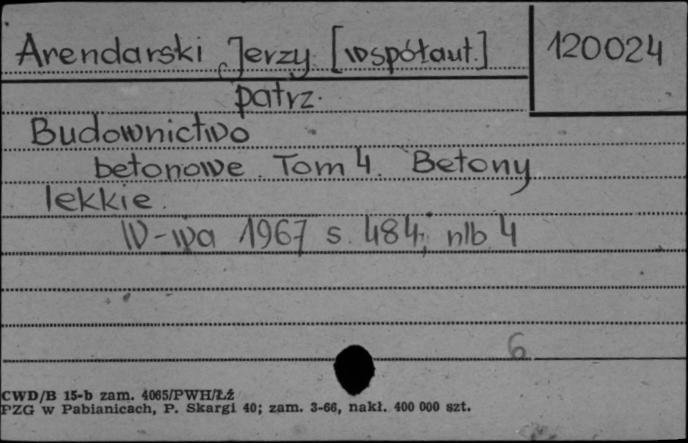 Arendarski Jerzy [współaut.] 120024
patrz.
Budownictwo
betonowe. Tom 4. Betony
lekkie.
W-wa 1967 s. 484, nlb 4
6
CWD/B 15-b zam. 4065/PWH/ŁŹ
PZG w Pabianicach, P. Skargi 40; zam. 3-66, nakł. 400 000 szt.